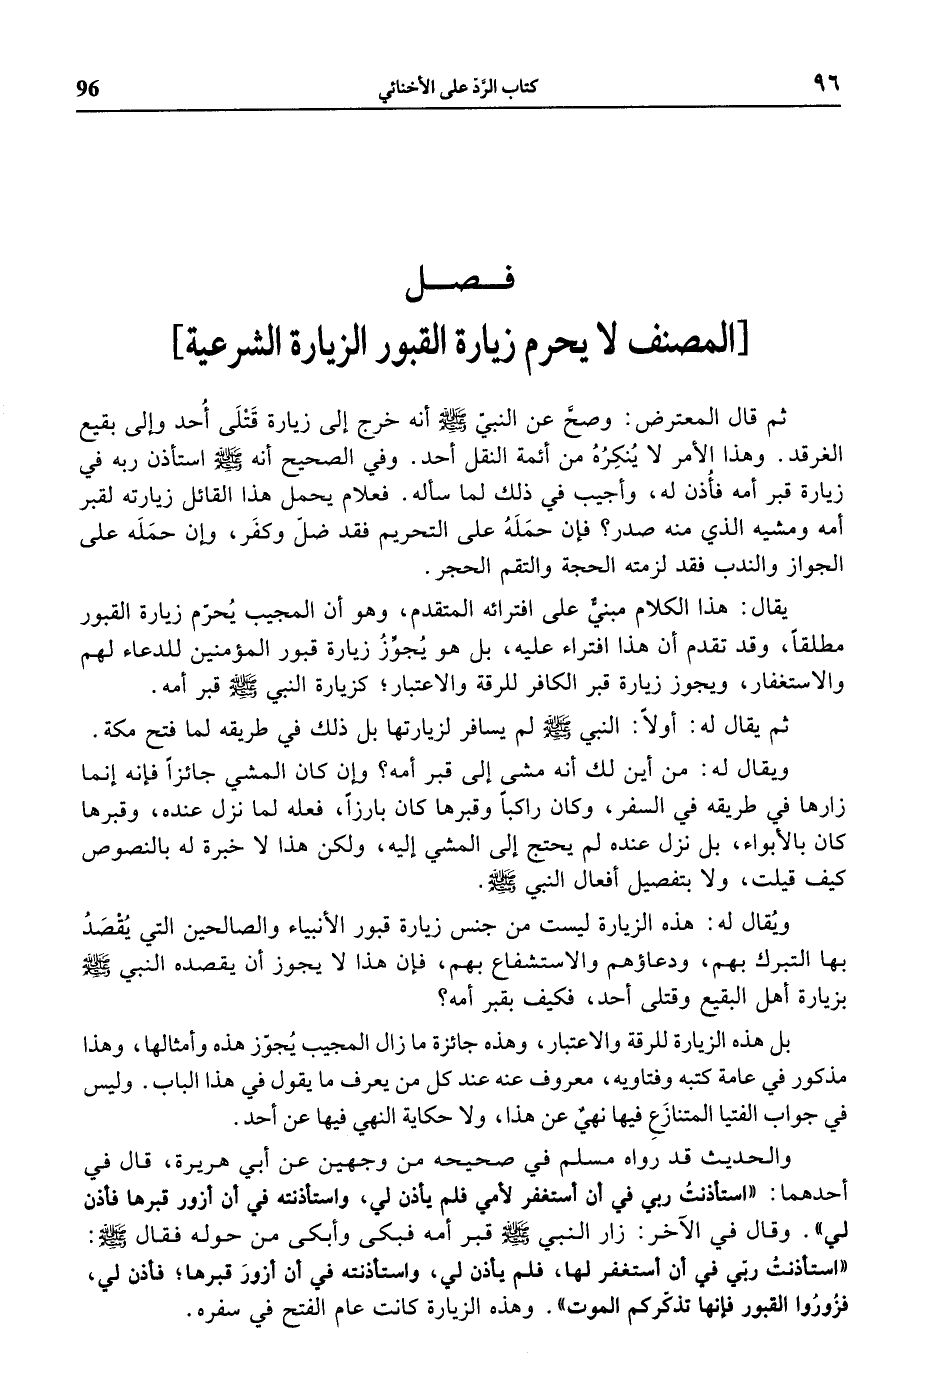 ٩٦ كتاب الرَّدّ على الأخنائي 96
فـصـل
[المصنف لا يحرم زيارة القبور الزيارة الشرعية]
ثم قال المعترض: وصحَّ عن النبيّ ﷺ أنه خرج إلى زيارة قَتْلَى أُحد وإلى بقيع
الغرقد. وهذا الأمر لا يُنكِرُهُ من أئمة النقل أحد. وفي الصحيح أنه ﷺ استأذن ربه في
زيارة قبر أمه فأُذن له، وأجيب في ذلك لما سأله. فعلام يحمل هذا القائل زيارته لقبر
أمه ومشيه الذي منه صدر؟ فإن حمَلَهُ على التحريم فقد ضلَ وكفَر، وإن حمَلَه على
الجواز والندب فقد لزمته الحجة والتقم الحجر.
يقال: هذا الكلام مبنيٌّ على افترائه المتقدم، وهو أن المجيب يُحرّم زيارة القبور
مطلقاً، وقد تقدم أن هذا افتراء عليه، بل هو يُجوِّزُ زيارة قبور المؤمنين للدعاء لهم
والاستغفار، ويجوز زيارة قبر الكافر للرقة والاعتبار؛ كزيارة النبي ﷺ قبر أمه.
ثم يقال له: أولاً: النبي ﷺ لم يسافر لزيارتها بل ذلك في طريقه لما فتح مكة.
ويقال له: من أين لك أنه مشى إلى قبر أمه؟ وإن كان المشي جائزاً فإنه إنما
زارها في طريقه في السفر، وكان راكباً وقبرها كان بارزاً، فعله لما نزل عنده، وقبرها
كان بالأبواء، بل نزل عنده لم يحتج إلى المشي إليه، ولكن هذا لا خبرة له بالنصوص
كيف قيلت، ولا بتفصيل أفعال النبي ﷺ.
ويُقال له: هذه الزيارة ليست من جنس زيارة قبور الأنبياء والصالحين التي يُقْصَدُ
بها التبرك بهم، ودعاؤهم والاستشفاع بهم، فإن هذا لا يجوز أن يقصده النبي ﷺ
بزيارة أهل البقيع وقتلى أحد، فكيف بقبر أمه؟
بل هذه الزيارة للرقة والاعتبار، وهذه جائزة ما زال المجيب يُجوّز هذه وأمثالها، وهذا
مذكور في عامة كتبه وفتاويه، معروف عنه عند كل من يعرف ما يقول في هذا الباب. وليس
في جواب الفتيا المتنازَعِ فيها نهيٌ عن هذا، ولا حكاية النهي فيها عن أحد.
والحديث قد رواه مسلم في صحيحه من وجهين عن أبي هريرة، قال في
أحدهما: «استأذنتُ ربي في أن أستغفر لأمي فلم يأذن لي، واستأذنته في أن أزور قبرها فأذن
لي». وقال في الآخر: زار النبي ﷺ قبر أمه فبكى وأبكى من حوله فقال ﷺ:
«استأذنتُ ربّي في أن أستغفر لها، فلم يأذن لي، واستأذنته في أن أزورَ قبرها؛ فأذن لي،
فزُورُوا القبور فإنها تذكّركم الموت». وهذه الزيارة كانت عام الفتح في سفره.